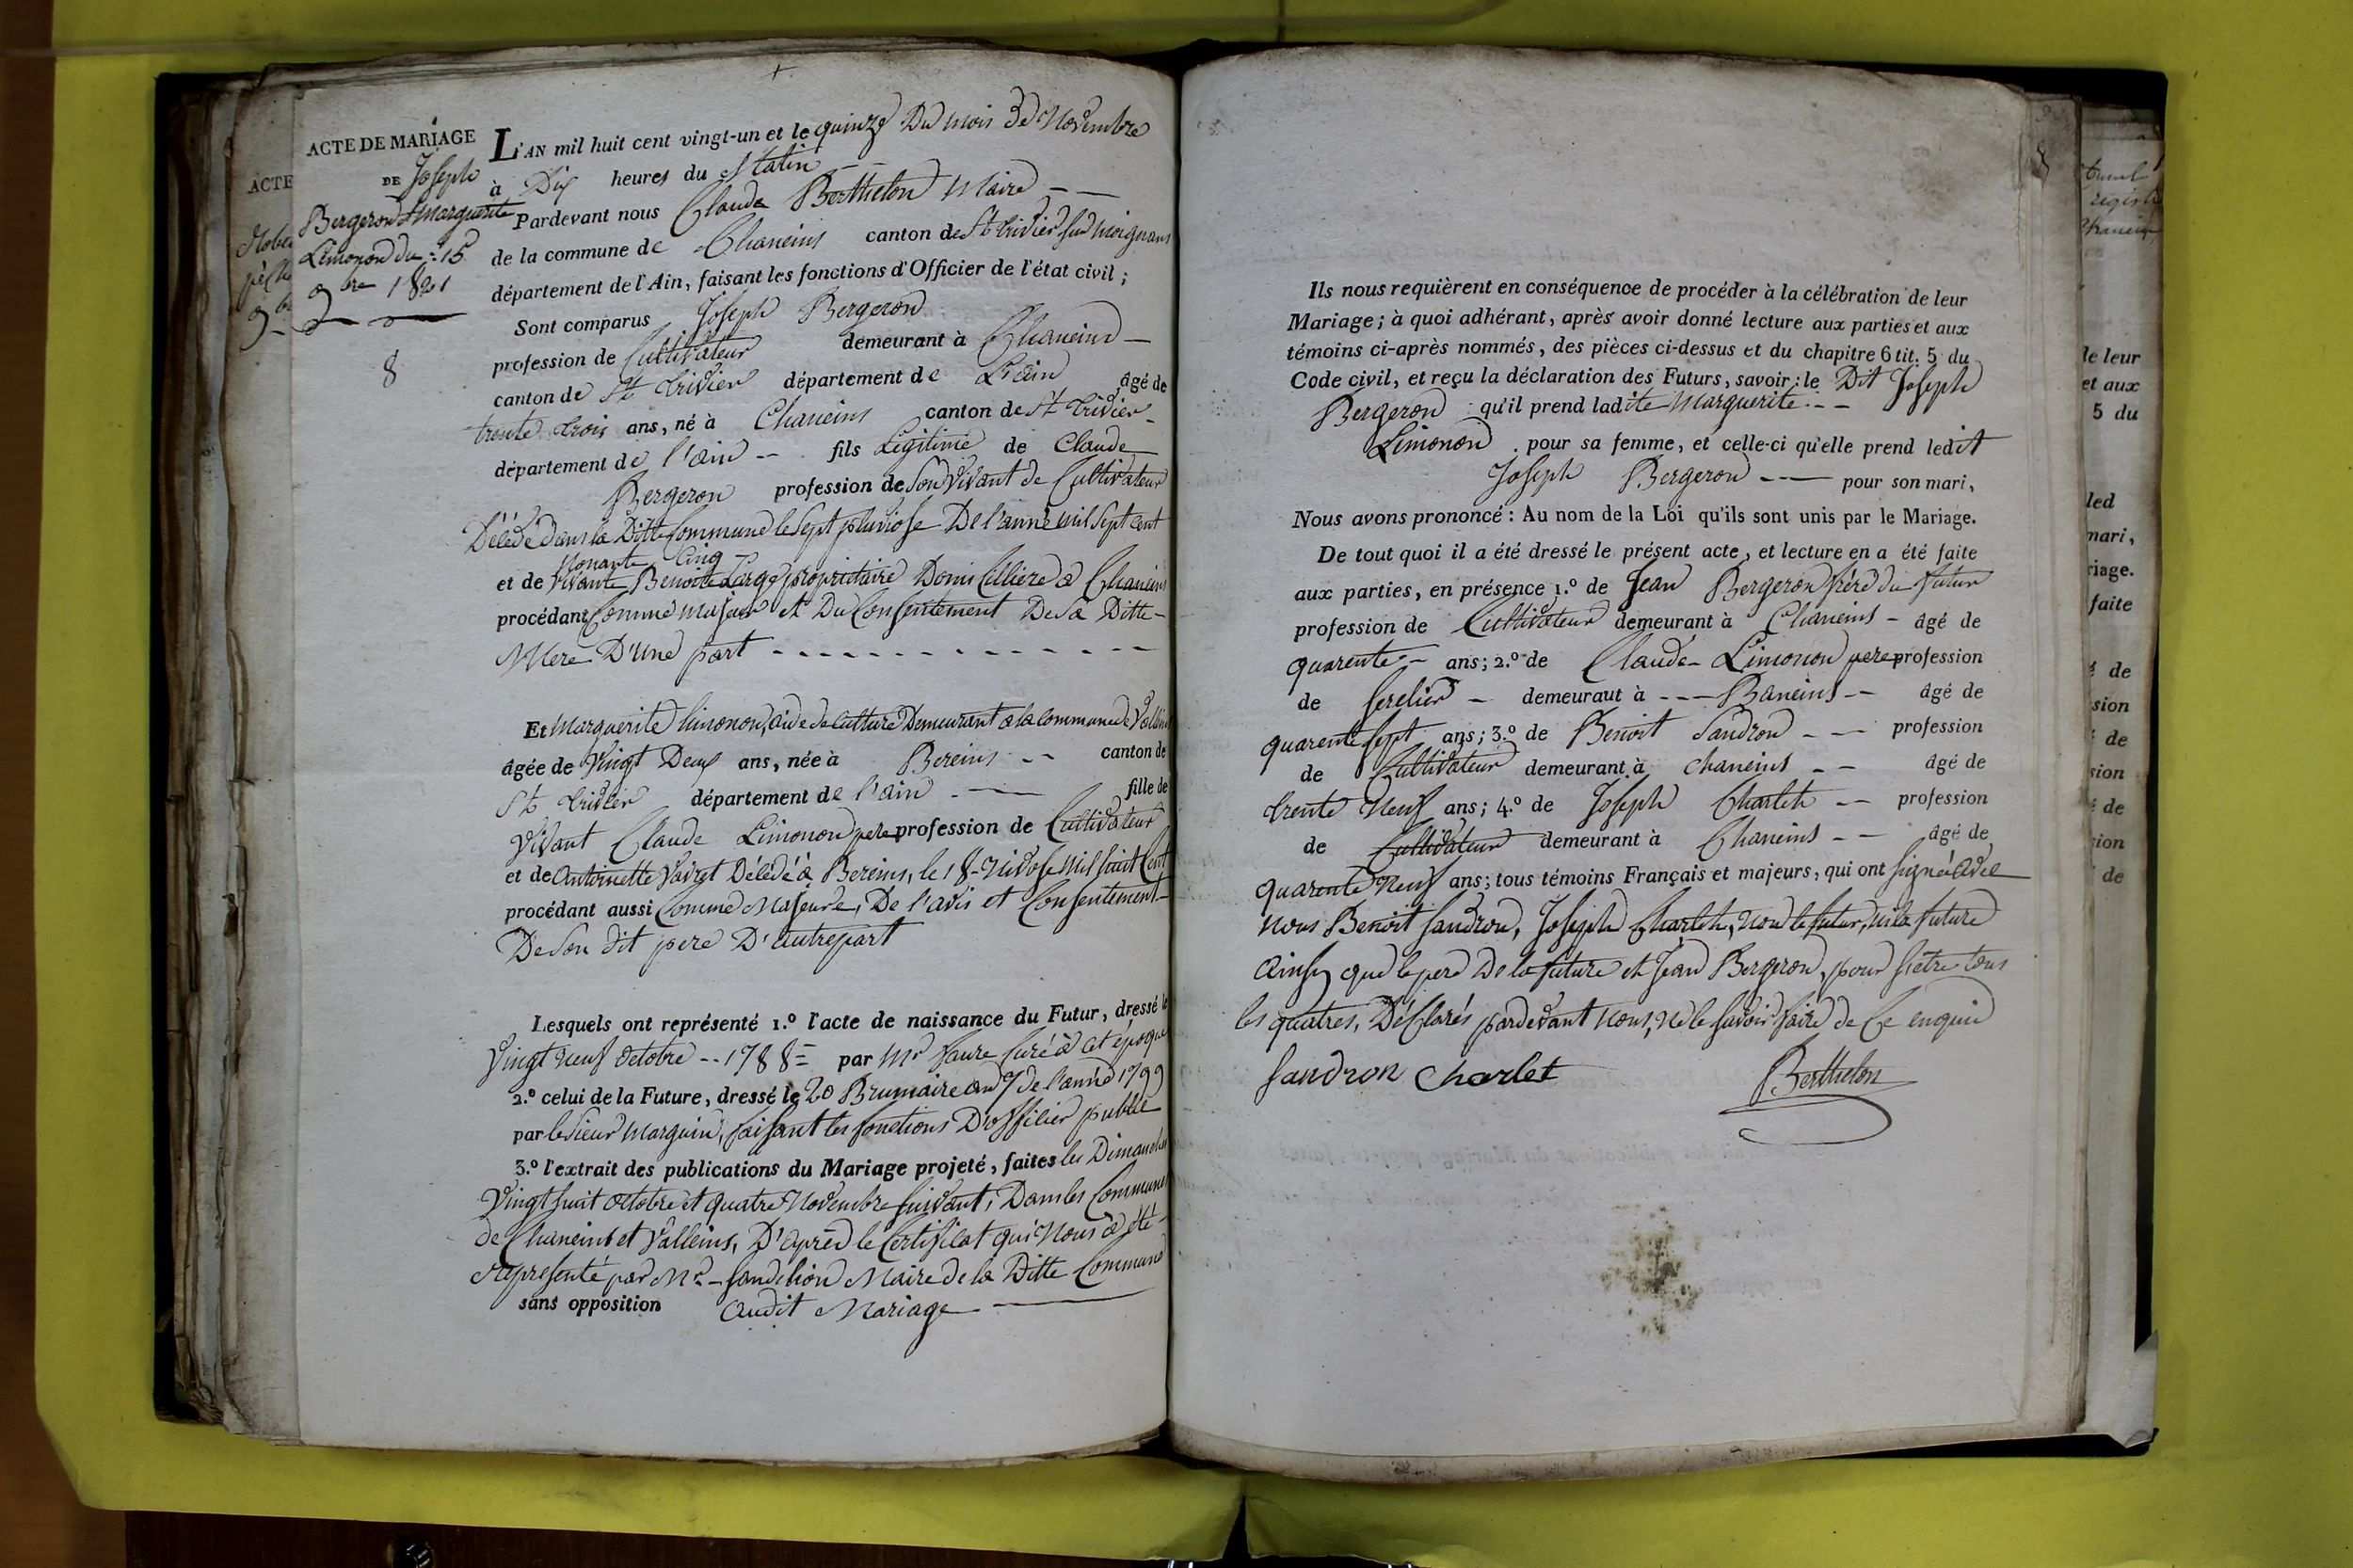 ACTE DE MARIAGE
DE Joseph
Bergeron & Marguerite
Limonon du 15
9bre 1821
8
L'AN mil huit cent vingt-un et le quinze Du mois De Novembre
à Dix heures du Matin
Pardevant nous Claude Berthelon Maire
de la commune de Chaneins canton de St trivier sur moignans
département de l'Ain, faisant les fonctions d'Officier de l'état civil;
Sont comparus Joseph Bergeron
profession de Cultivateur demeurant à Chaneins
canton de St trivier département de L'ain âgé de
trente trois ans, né à Chaneins canton de St trivier
département de l'ain fils Légitime de Claude
Bergeron profession de Son Vivant de Cultivateur
Décédé dans la Ditte Commune le Sept pluviose De l'anné mil Sept cent
Nonante Cinq
et de Vivante Benoite Large propriétaire Domicilliere à Chaneins
procédant Comme Majeur et Du Consentement De Sa Ditte
Mere D'une part
Et Marguerite Limonon, aide de culture Demeurant à la commune de Valleins
âgée de Vingt Deux ans, née à Bereins canton de
St trivier département de l'ain fille de
Vivant Claude Limonon pere profession de Cultivateur
et de Antoinette Décédé à Bereins, le 18 Nivose Mil huit Cent
procédant aussi Comme Majeure, De l'avis et Consentement
De Son dit pere D'autrepart
Lesquels ont représenté 1.º l'acte de naissance du Futur, dressé le
Vingt neuf Octobre 1788 par Mr faure Curé à cet époque
2.º celui de la Future, dressé le 20 Brumaire an 7 de l'anné 1799
par le Sieur Marguin, faisant les fonctions D'officier public
3.º l'extrait des publications du Mariage projeté, faites les Dimanches
Vingt huit Octobre et quatre Novembre Suivant, Dans les Communes
de Chaneins et Valleins, D'après le Certificat qui Nous à été
représenté par Mr Sandelion Maire de la Ditte Commune
sans opposition audit Mariage
Ils nous requièrent en conséquence de procéder à la célébration de leur
Mariage; à quoi adhérant, après avoir donné lecture aux parties et aux
témoins ci-après nommés, des pièces ci-dessus et du chapitre 6 tit. 5 du
Code civil, et reçu la déclaration des Futurs, savoir: le Dit Joseph
Bergeron qu'il prend ladite Marguerite
Limonon pour sa femme, et celle-ci qu'elle prend ledit
Joseph Bergeron pour son mari,
Nous avons prononcé: Au nom de la Loi qu'ils sont unis par le Mariage.
De tout quoi il a été dressé le présent acte, et lecture en a été faite
aux parties, en présence 1.º de Jean Bergeron frére du futur
profession de Cultivateur demeurant à Chaneins âgé de
quarente ans; 2.º de Claude Limonon pere profession
de Serelier demeuraut à Baneins âgé de
quarente Sept ans; 3.º de Benoit Sandron profession
de Cultivateur demeurant à Chaneins âgé de
trente Neuf ans; 4.º de Joseph Charlet profession
de Cultivateur demeurant à Chaneins âgé de
quarente Neuf ans; tous témoins Français et majeurs, qui ont Signé avec
nous Benoit Sandron, Joseph Charlet, non le futur, ni la future
ainsy que le pere De la future et Jean Bergeron, pour S'etre tous
les quatres, Déclarés pardevant nous, ne le Savoir faire de Ce enquis
Sandron Charlet Berthelon